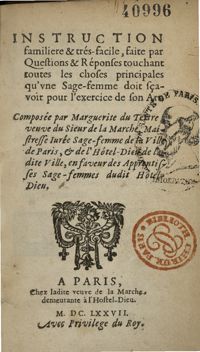 40996
INSTRUCTION
familiere & trés-facile, faite par
Questions & Réponses touchant
toutes les choses principales
qu'vne Sage-femme doit sça-
voir pour l'exercice de son
Composée par Marguerite du Tertre
veuve du Sieur de la Marche, Mai-
stresse Iurée Sage-femme de la Ville
de Paris, & de l'Hôtel-Dieu de la-
dite Ville, en faveur des Apprentis-
ses Sage-femmes dudit Hôtel
Dieu.
A PARIS,
Chez ladite veuve de la Marche,
demeurante à l'Hostel-Dieu.
M. DC. LXXVII.
Avec Privilege du Roy.
DE PARIS